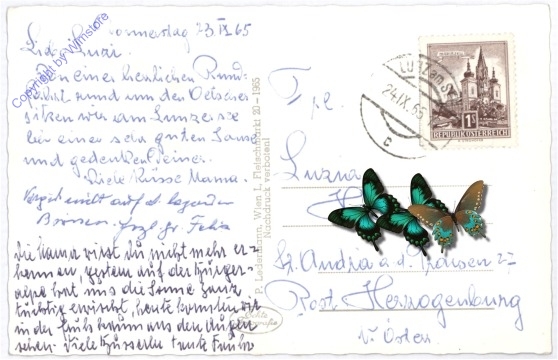 Donnerstag 23 IX 65
Liebe Susi!
Von einer herrlichen Rund-
fahrt rund um den Oetscher
sitzen wir am Lunzersee
bei einer sehr guten Jause
und gedenken Deiner.
Viele Küsse Mama.
Vergiß nicht auf
die Mama wirst du nicht mehr er-
kennen, gestern auf der Bürger-
alpe hat uns die Sonne ganz
tüchtig erwischt, heute konnten wir
in der Früh kaum aus den Augen
sehen. Viele Küsserln tante
Copyright by Wimstore
P. Ledermann, Wien I, Fleischmarkt 20 - 1965
Nachdruck verboten!
Echte
LUNZ am See
24.IX.65
c
1S
REPUBLIK ÖSTERREICH
Frl.
St. Andrä a. d. Traisen 22
Post Herzogenburg
N. Österr.